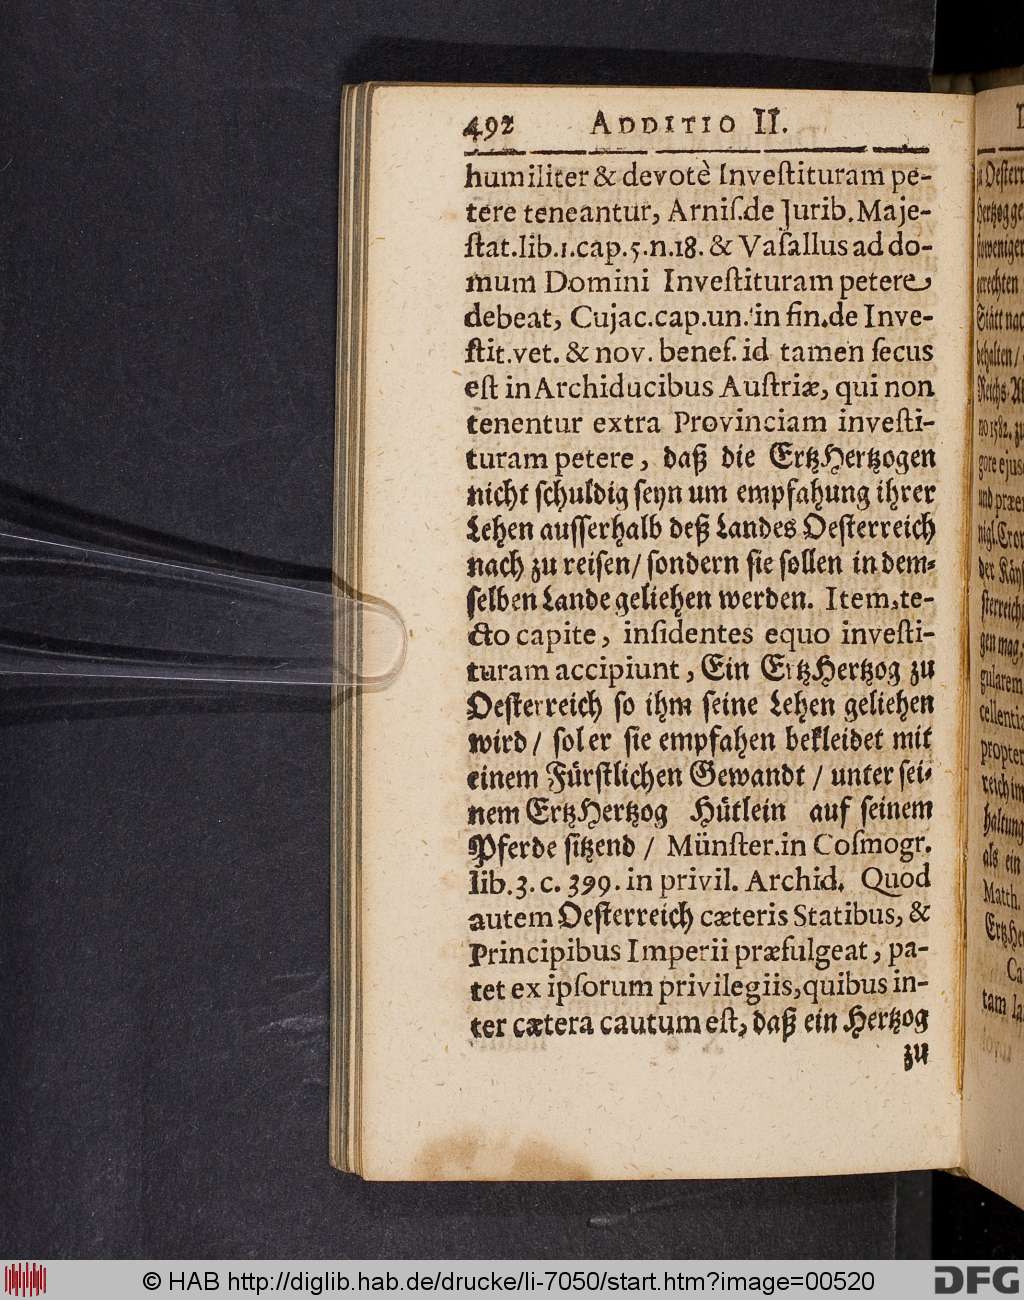 492 ADDITIO II.
humiliter & devotè Inveſtituram pe-
tere teneantur, Arniſ.de Jurib.Maje-
ſtat.lib.1.cap.5.n.18. & Vaſallus ad do-
mum Domini Inveſtituram petere
debeat, Cujac.cap.un. in fin.de Inve-
ſtit.vet. & nov. benef. id tamen ſecus
eſt in Archiducibus Auſtriæ, qui non
tenentur extra Provinciam inveſti-
turam petere, daß die ErtzHertzogen
nicht ſchuldig ſeyn um empfahung ihrer
Lehen auſſerhalb deß Landes Oeſterreich
nach zu reiſen/ ſondern ſie ſollen in dem-
ſelben Lande geliehen werden. Item, te-
cto capite, inſidentes equo inveſti-
turam accipiunt, Ein ErtzHertzog zu
Oeſterreich ſo ihm ſeine Lehen geliehen
wird/ ſol er ſie empfahen bekleidet mit
einem Fürſtlichen Gewandt/ unter ſei-
nem ErtzHertzog Hütlein auf ſeinem
Pferde ſitzend/ Münſter.in Coſmogr.
lib.3.c.399.in privil. Archid. Quod
autem Oeſterreich cæteris Statibus, &
Principibus Imperii præfulgeat, pa-
tet ex ipſorum privilegiis, quibus in-
ter cætera cautum eſt, daß ein Hertzog
zu
© HAB http://diglib.hab.de/drucke/li-7050/start.htm?image=00520
DFG